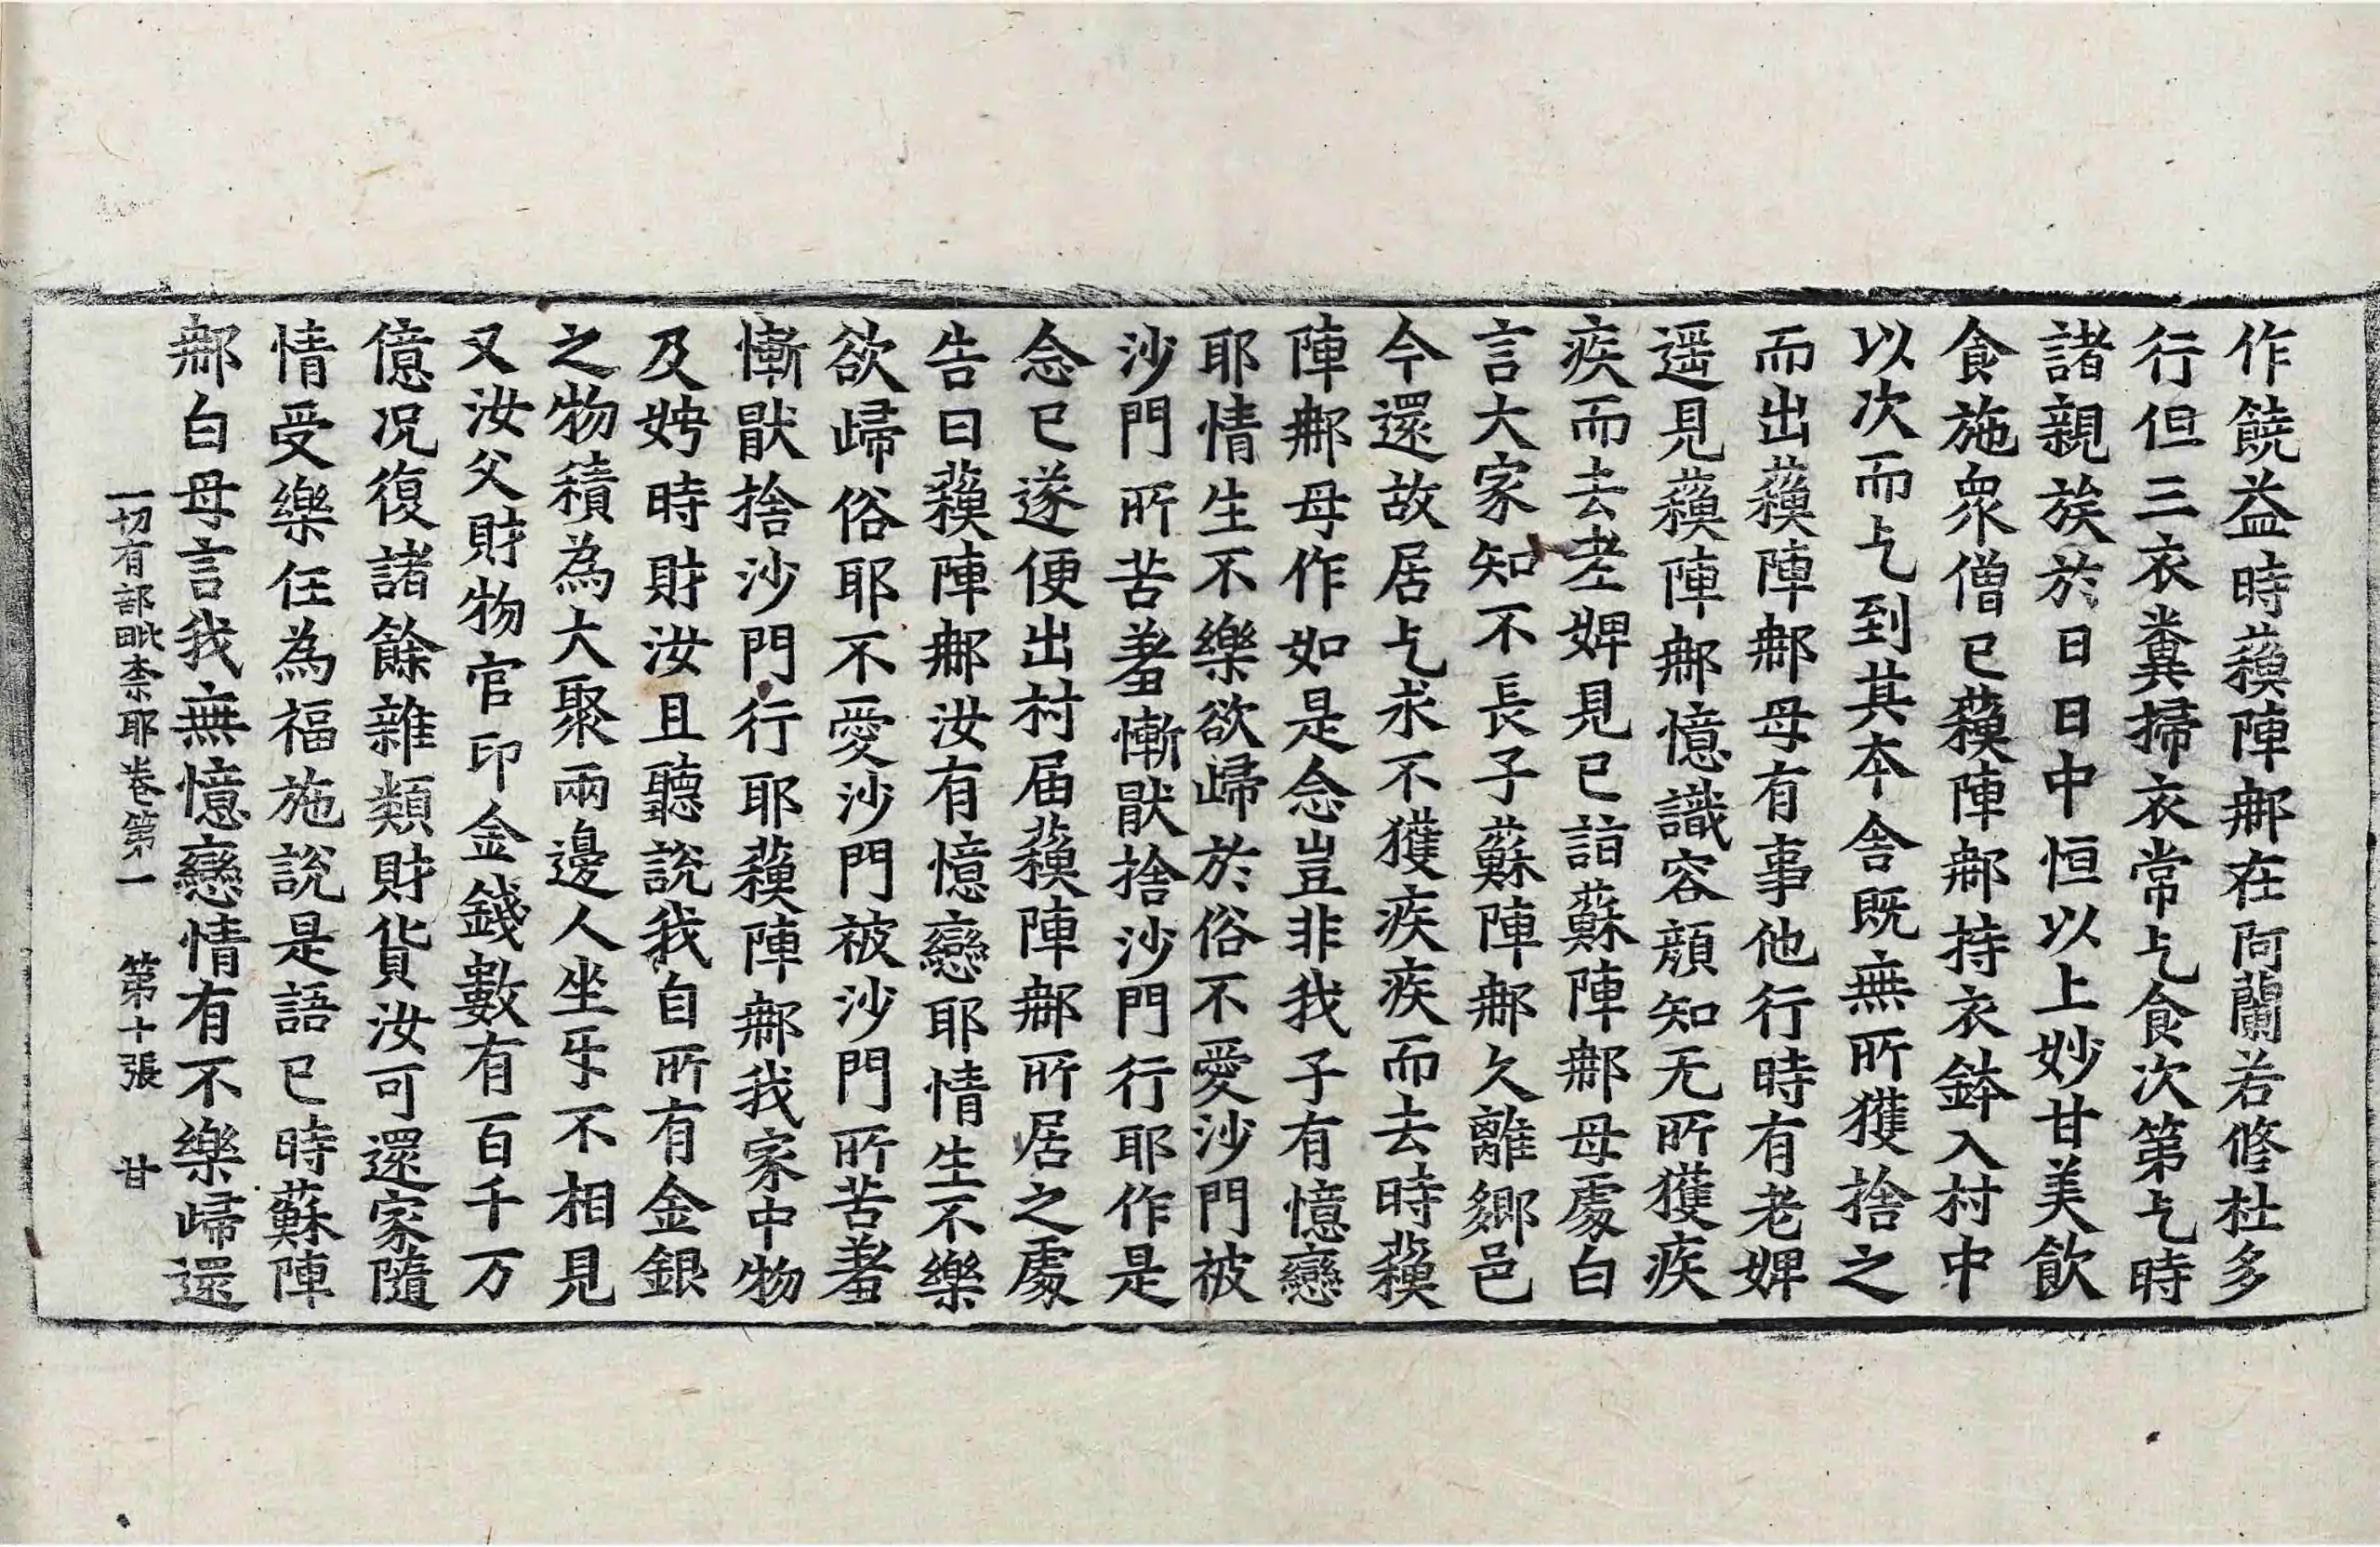 作饒益時蘓陣郍在阿蘭若修杜多
行但三衣糞掃衣常乞食次第乞時
諸親族於日日中恒以上妙甘美飲
食施衆僧已蘓陣郍持衣鉢入村中
以次而乞到其本舍既無所獲捨之
而出蘓陣郍母有事他行時有老婢
遥見蘓陣郍憶識容顔知无所獲疾
疾而去老婢見已詣蘇陣郍母處白
言大家知不長子蘇陣郍久離鄉邑
今還故居乞求不獲疾疾而去時蘓
陣郍母作如是念豈非我子有憶戀
耶情生不樂欲歸於俗不愛沙門被
沙門所苦羞慚猒捨沙門行耶作是
念已遂便出村届蘓陣郍所居之處
告曰蘓陣郍汝有憶戀耶情生不樂
欲歸俗耶不愛沙門被沙門所苦羞
慚猒捨沙門行耶蘓陣郍我家中物
及娉時財汝且聽說我自所有金銀
之物積為大聚兩邊人坐㸦不相見
又汝父財物官印金錢數有百千万
億况復諸餘雜類財貨汝可還家隨
情受樂任為福施說是語已時蘇陣
郍白母言我無憶戀情有不樂歸還
一切有部毗柰耶卷第一　第十張　甘